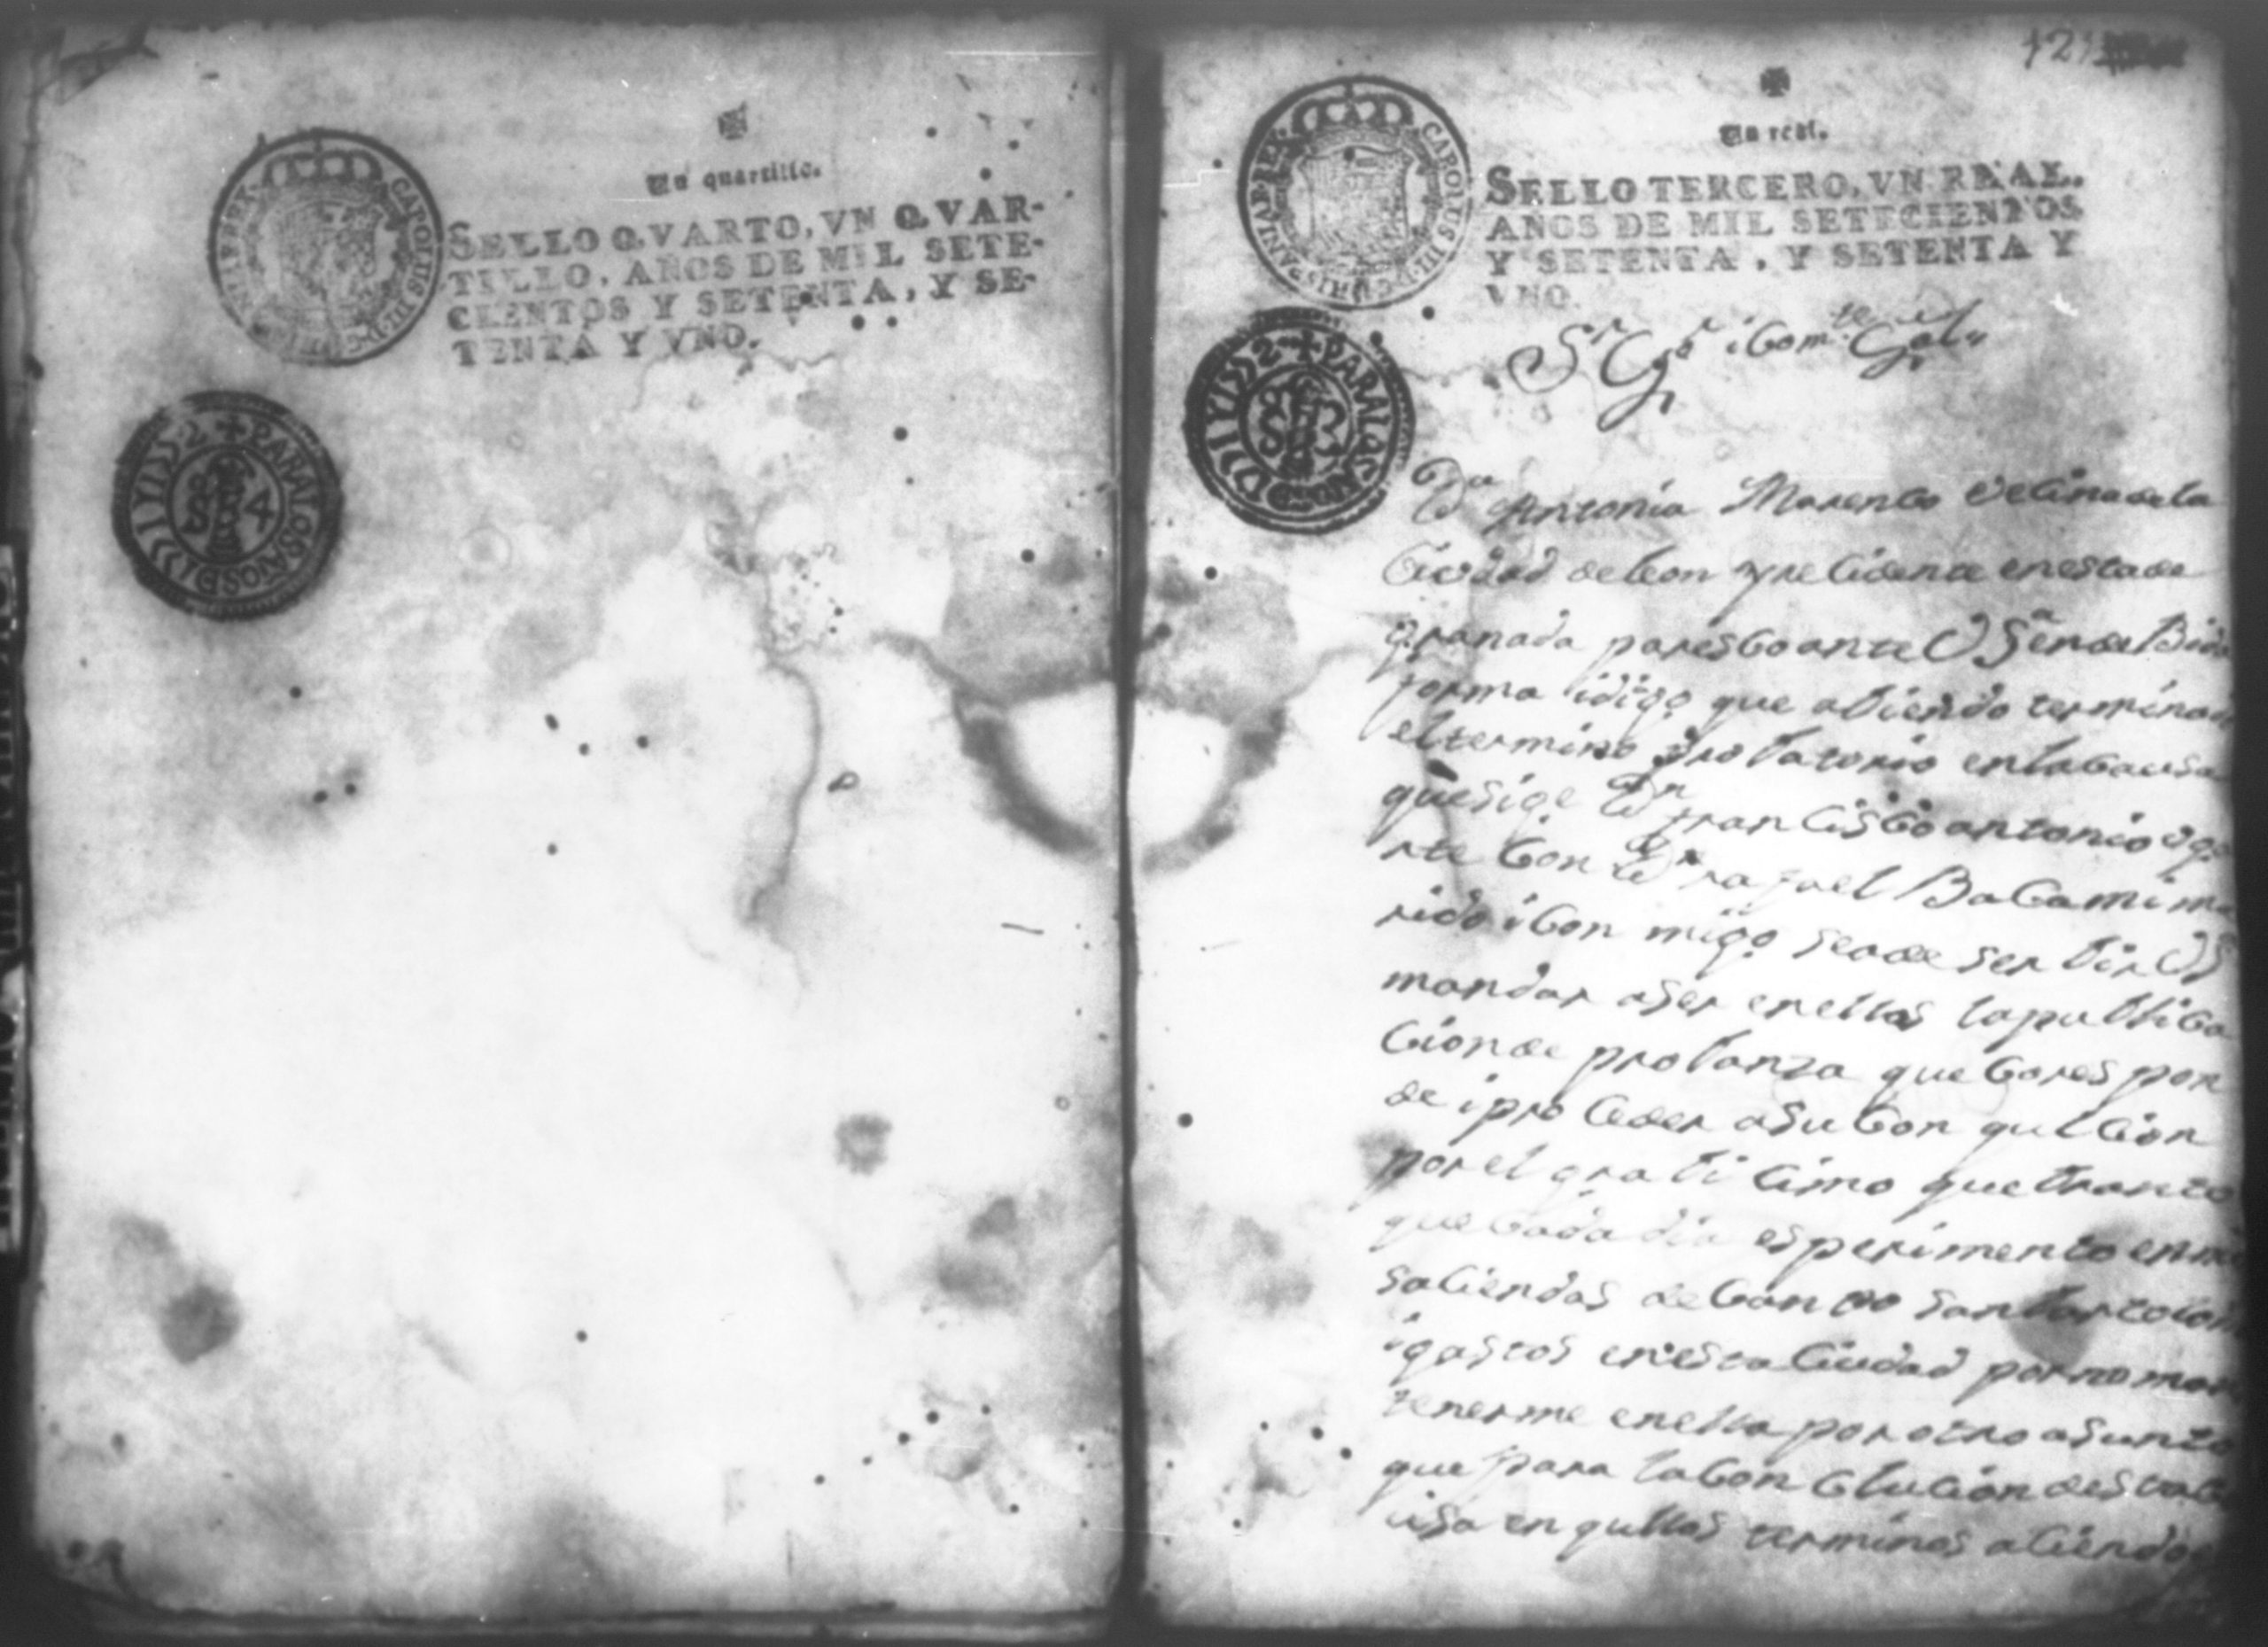 Un quartillo.
SELLO QVARTO, VN QVAR-
TILLO, AÑOS DE MIL SETE-
CIENTOS Y SETENTA, Y SE-
TENTA Y VNO.
121
Un real.
SELLO TERCERO, VN REAL.
AÑOS DE MIL SETECIENTOS
Y SETENTA, Y SETENTA Y
VNO.
CAROLUS III D G HISPANIAR REX
PARA LOS AÑOS D
Sr Gr i Comte Gel
Da Antonia Marenco Vecina de la
Ciudad de leon y recidente en esta de
Granada paresco ante VSª en devida
forma i digo que abiendo terminado
el termino probatorio en la causa
que sige Dn francisco antonio Uga
rte con Dn rafael Baca mi ma
rido i con migo se a de serbir VS
mandar aser en ellos la publica
cion de probanza que corespon
de i proceder a su con qulcion
por el grabicimo quebranto
que cada dia esperimento en mis
saciendas de san bartolom
i gastos en esta Ciudad por no man
tenerme en ella por otro asunto
que para la con clucion desta ca
usa en qullos terminos aciendo